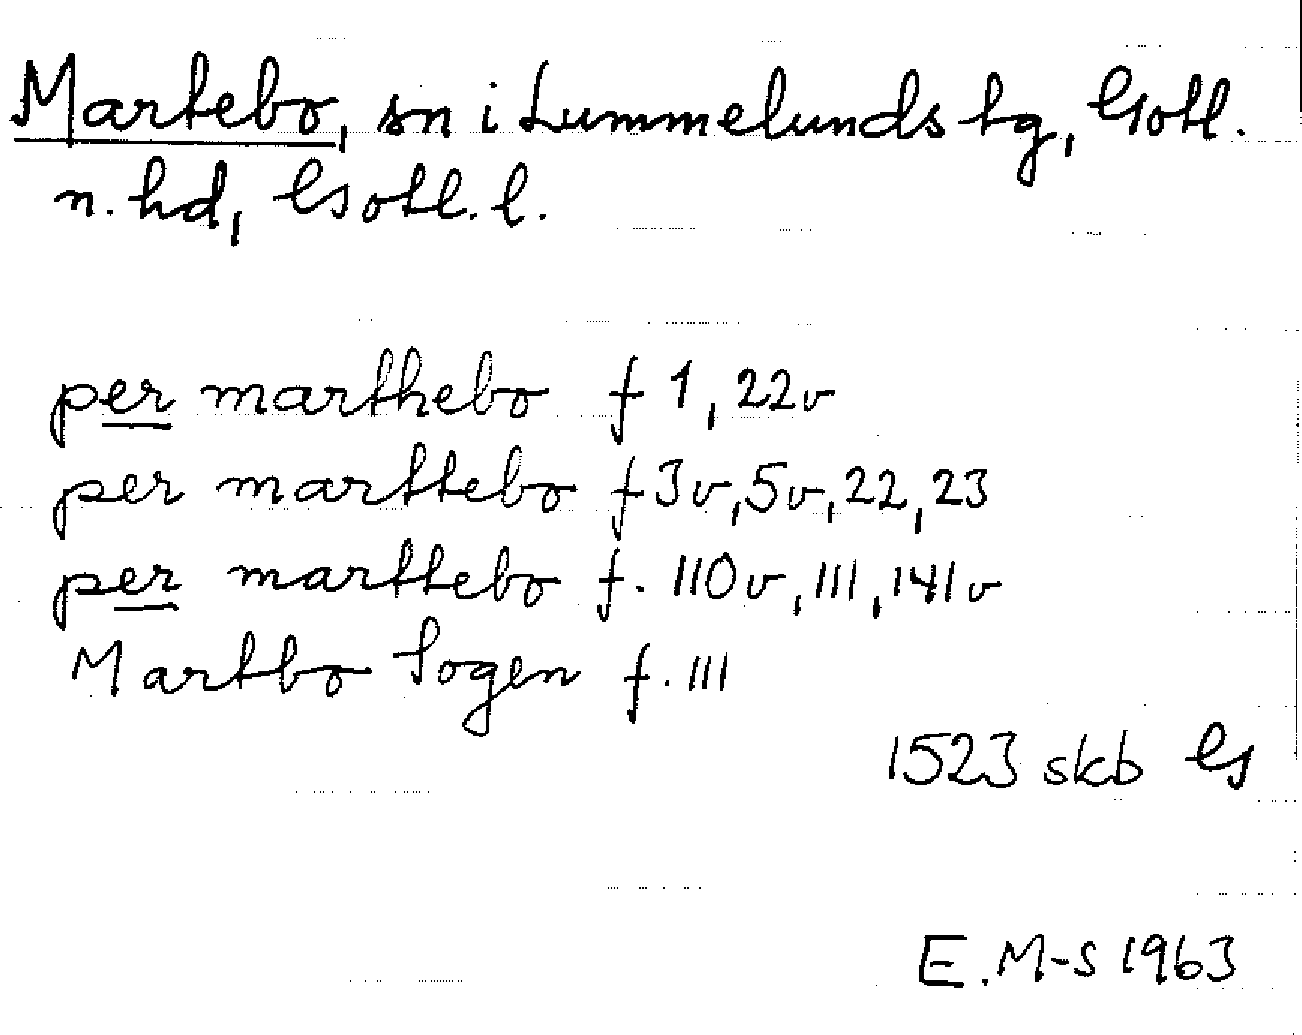 Martebo, sn i Lummelunds tg, Gotl.
n. hd, Gotl. l.
per marthebo f 1, 22v
per marttebo f 3v, 5v, 22, 23
per marttebo f. 110v, 111, 141v
Martbo Sogen f. 111
1523 skb G
E. M-S 1963